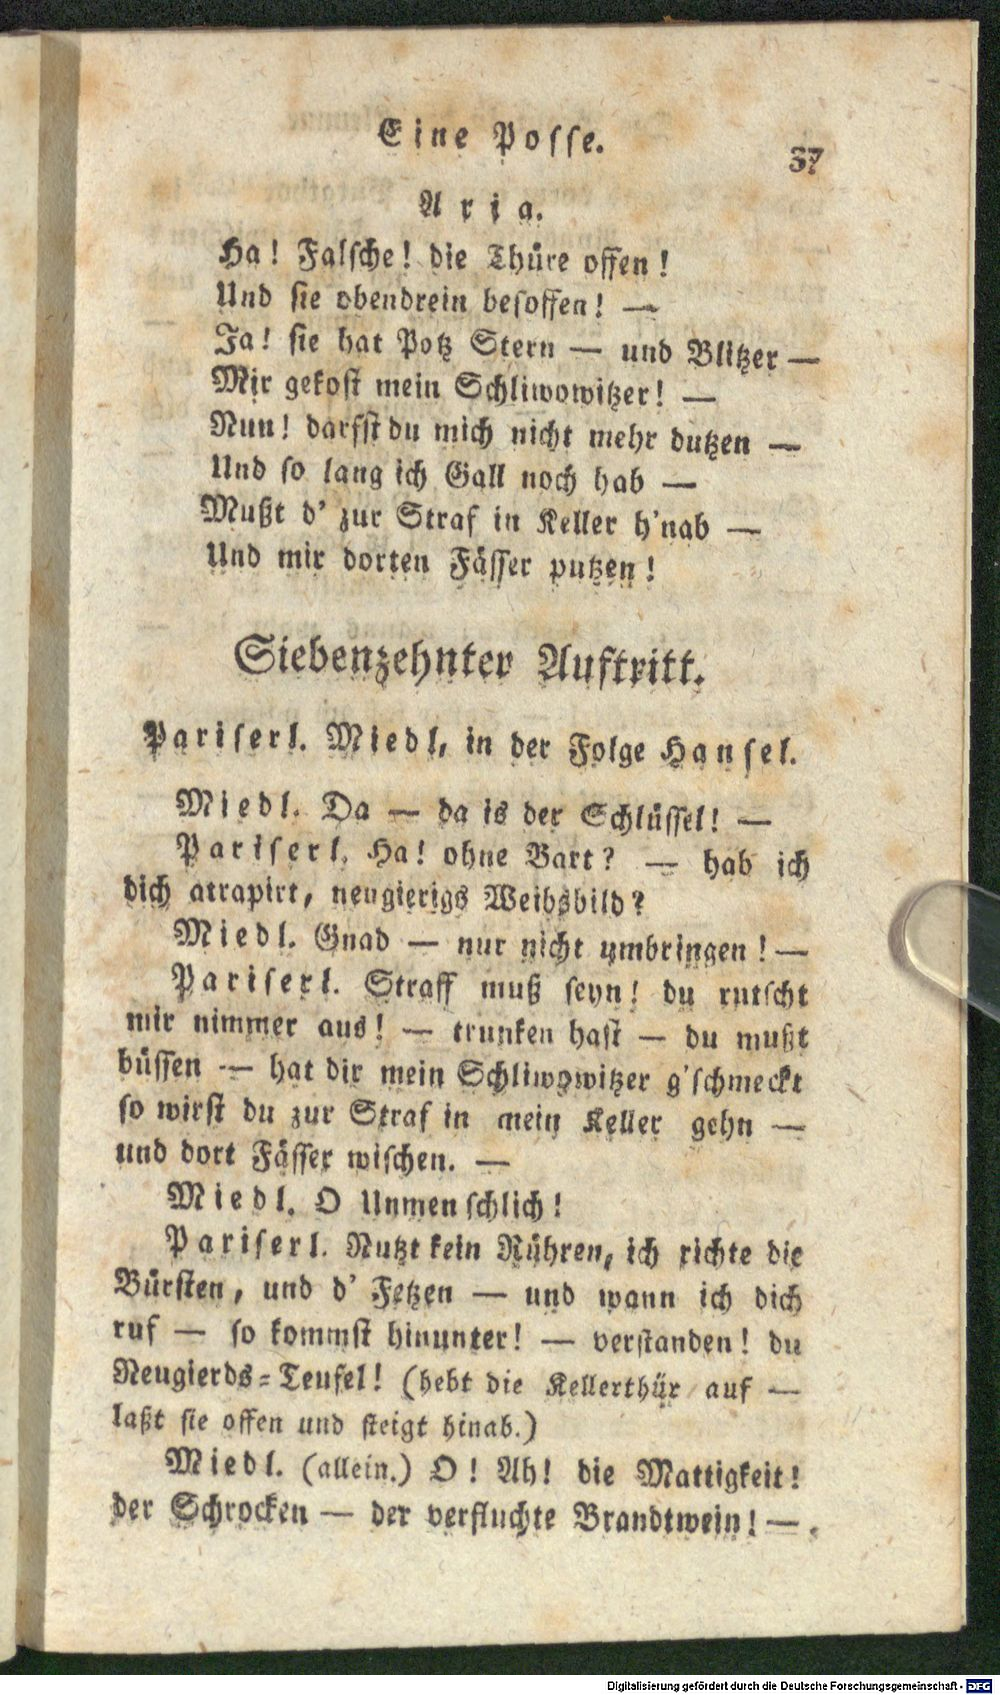 Eine Posse.
37
Aria.
Ha! Falsche! die Thüre offen!
Und sie obendrein besoffen! —
Ja! sie hat Potz Stern — und Blitzer —
Mir gekost mein Schliwowitzer! —
Nun! darfst du mich nicht mehr dutzen —
Und so lang ich Gall noch hab —
Mußt d' zur Straf in Keller h'nab —
Und mir dorten Fässer putzen!
Siebenzehnter Auftritt.
Pariserl. Miedl, in der Folge Hansel.
Miedl. Da — da is der Schlüssel! —
Pariserl. Ha! ohne Bart? — hab ich
dich atrapirt, neugierigs Weibsbild?
Miedl. Gnad — nur nicht umbringen! —
Pariserl. Straff muß seyn! du rutscht
mir nimmer aus! — trunken hast — du mußt
büssen — hat dir mein Schliwowitzer g'schmeckt
so wirst du zur Straf in mein Keller gehn —
und dort Fässer wischen. —
Miedl. O Unmenschlich!
Pariserl. Nutzt kein Rühren, ich richte die
Bürsten, und d' Fetzen — und wann ich dich
ruf — so kommst hinunter! — verstanden! du
Neugierds-Teufel! (hebt die Kellerthür auf —
laßt sie offen und steigt hinab.)
Miedl. (allein.) O! Ah! die Mattigkeit!
der Schrocken — der verfluchte Brandtwein! —
Digitalisierung gefördert durch die Deutsche Forschungsgemeinschaft - DFG